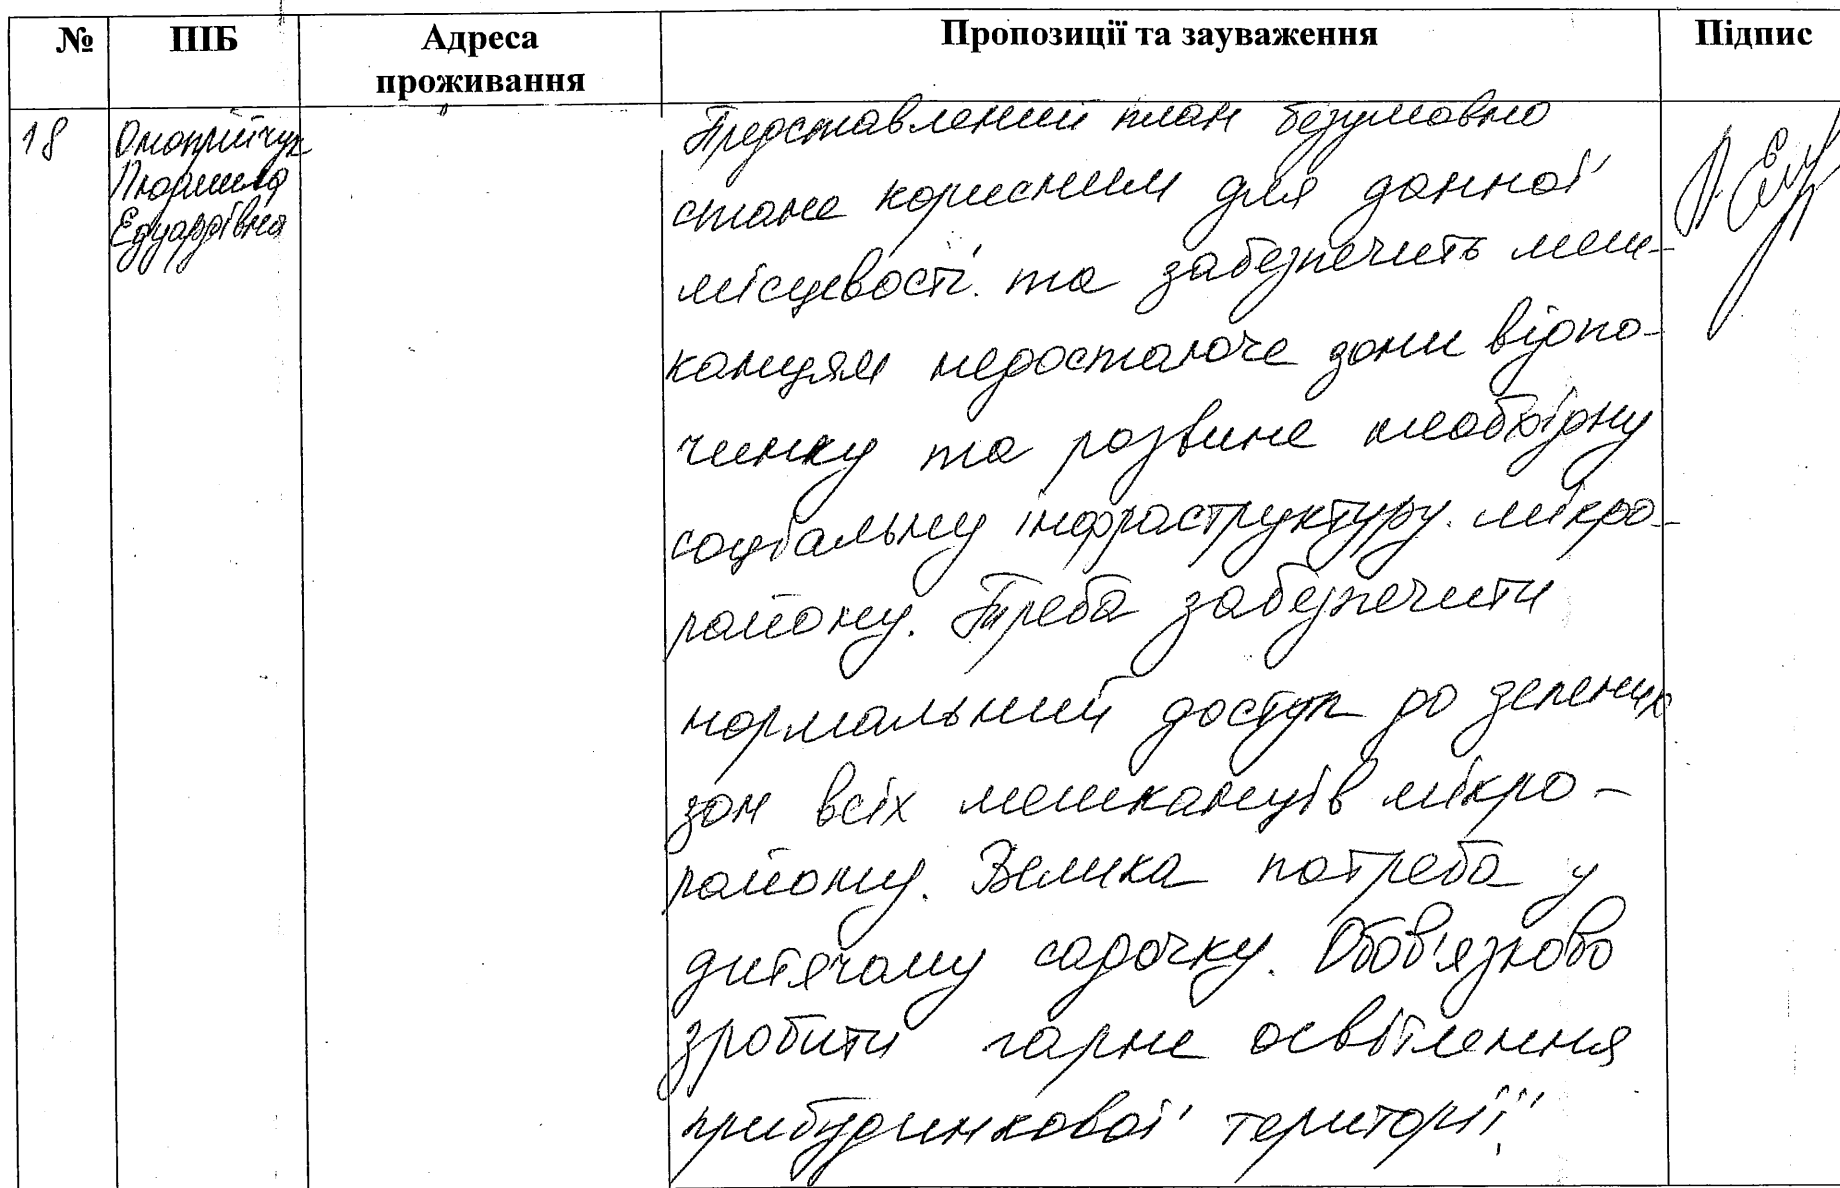 № ПІБ Адреса проживання Пропозиції та зауваження Підпис
18
Оноприйчук
Людмила
Едуардівна
Представлений план безумовно
стане корисним для данної
місцевості та забезпечить меш-
канцям недостаюче зони відпо-
чинку та розвине необхідну
соціальну інфраструктуру мікро-
району. Треба забезпечити
нормальний доступ до зелених
зон всіх мешканців мікро-
району. Велика потреба у
дитячому садочку. Обов'язково
зробити гарне освітлення
прибудинкової території.